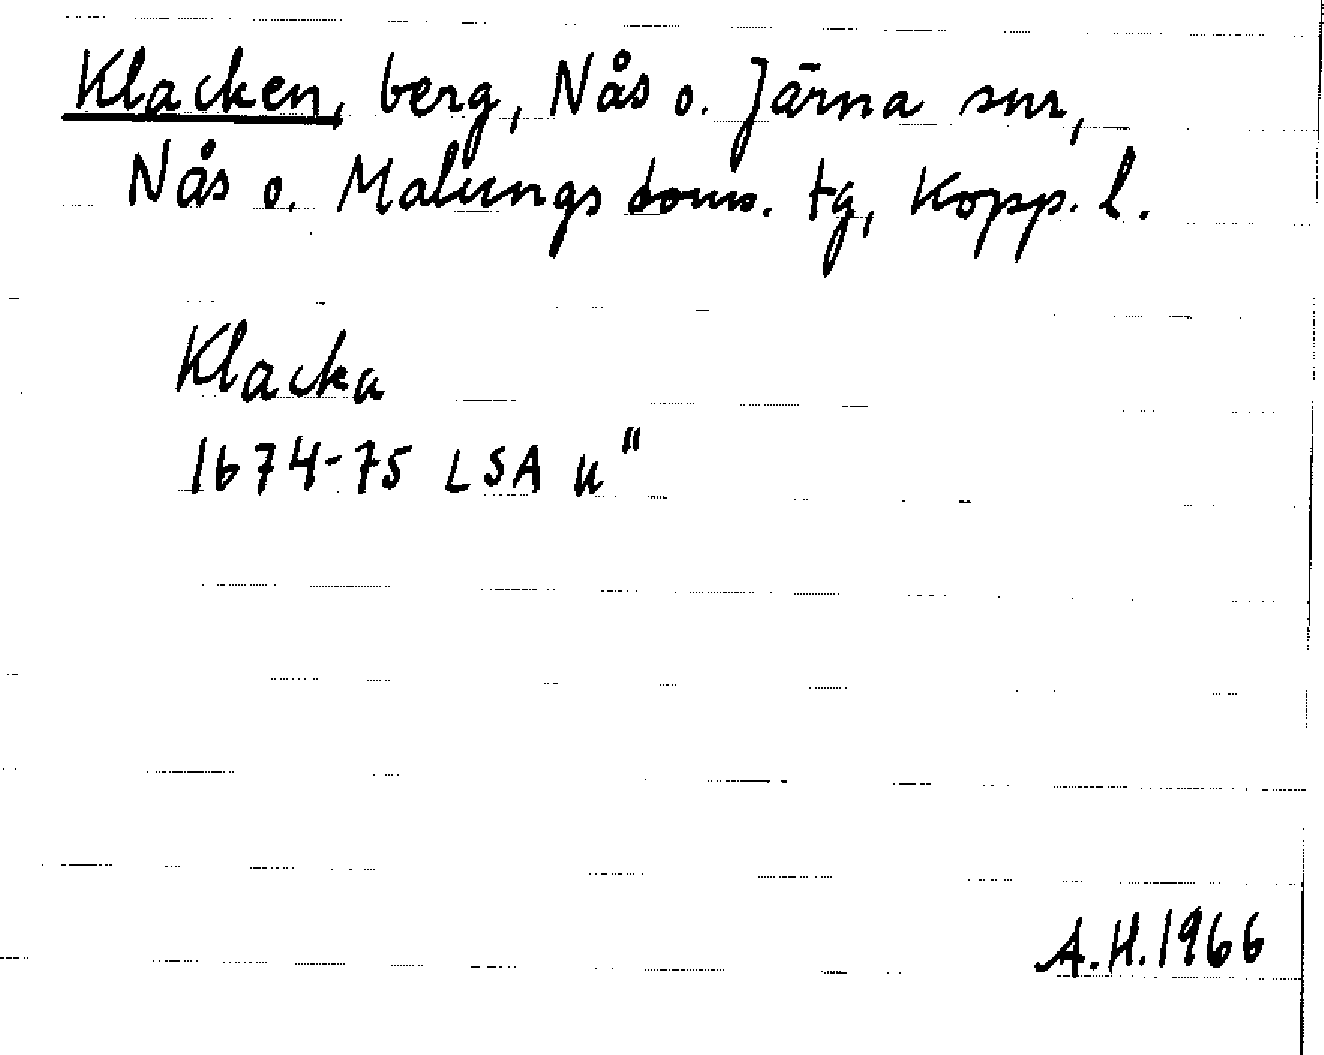 Klacken, berg, Nås o. Järna snr,
Nås o. Malungs doms. tg, Kopp. l.
Klacka
1674-75 LSA u"
A.H.1966